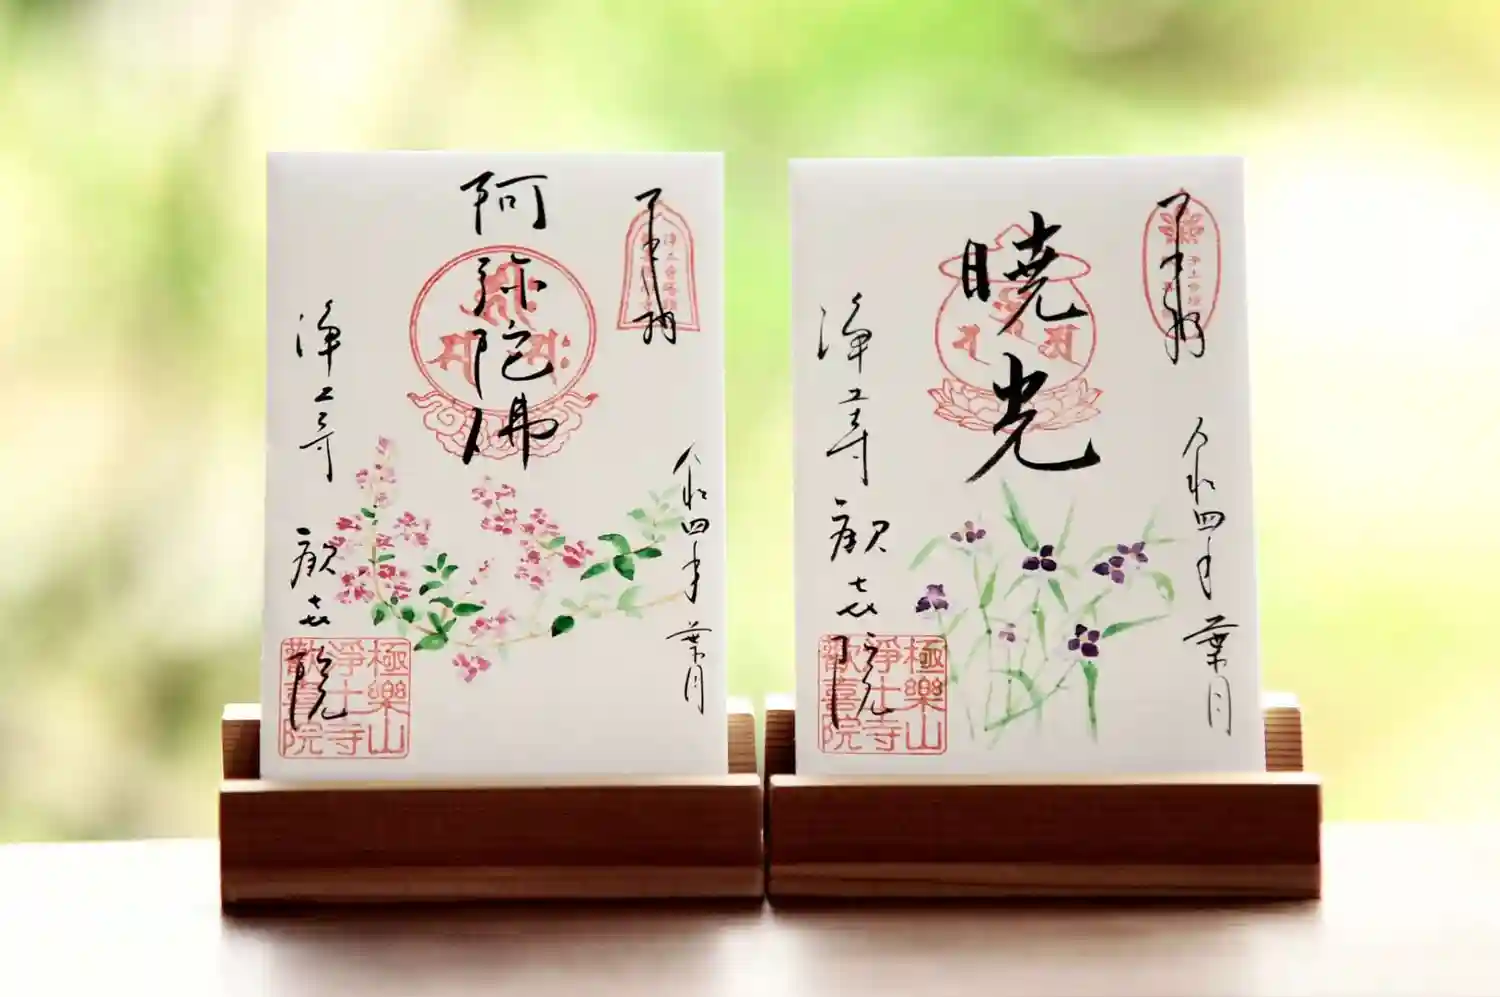 奉拝
阿弥陀佛
令和四年 葉月
浄土寺 歓喜院
極樂山
淨土寺
歡喜院
奉拝
暁光
令和四年 葉月
浄土寺 歓喜院
極樂山
淨土寺
歡喜院